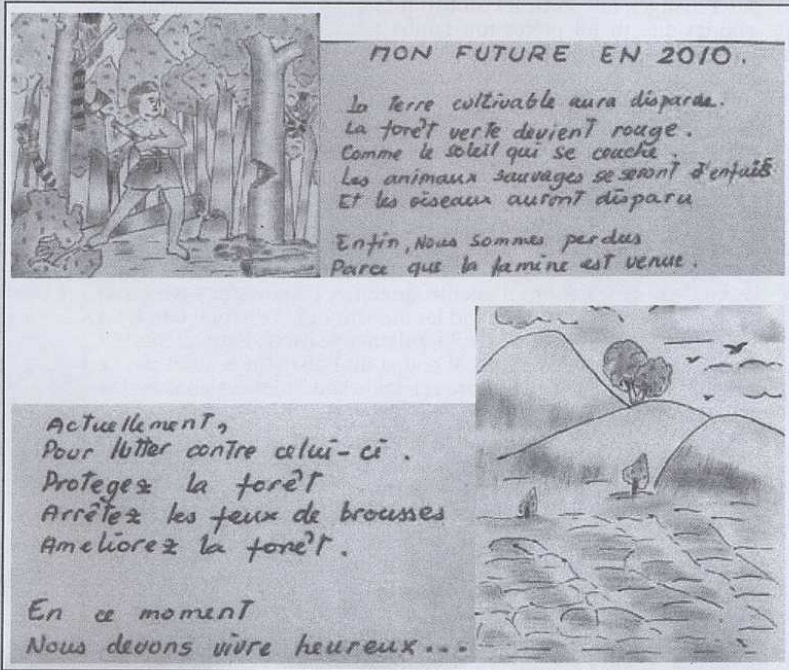 MON FUTURE EN 2010.
La terre cultivable aura disparue.
La forêt verte devient rouge.
Comme le soleil qui se couche.
Les animaux sauvages se seront d'enfuis
Et les oiseaux auront disparu
Enfin, Nous sommes perdus
Parce que la famine est venue.
Actuellement,
Pour lutter contre celui-ci.
Protegez la forêt
Arrêtez les feux de brousses
Ameliorez la forêt.
En ce moment
Nous devons vivre heureux...